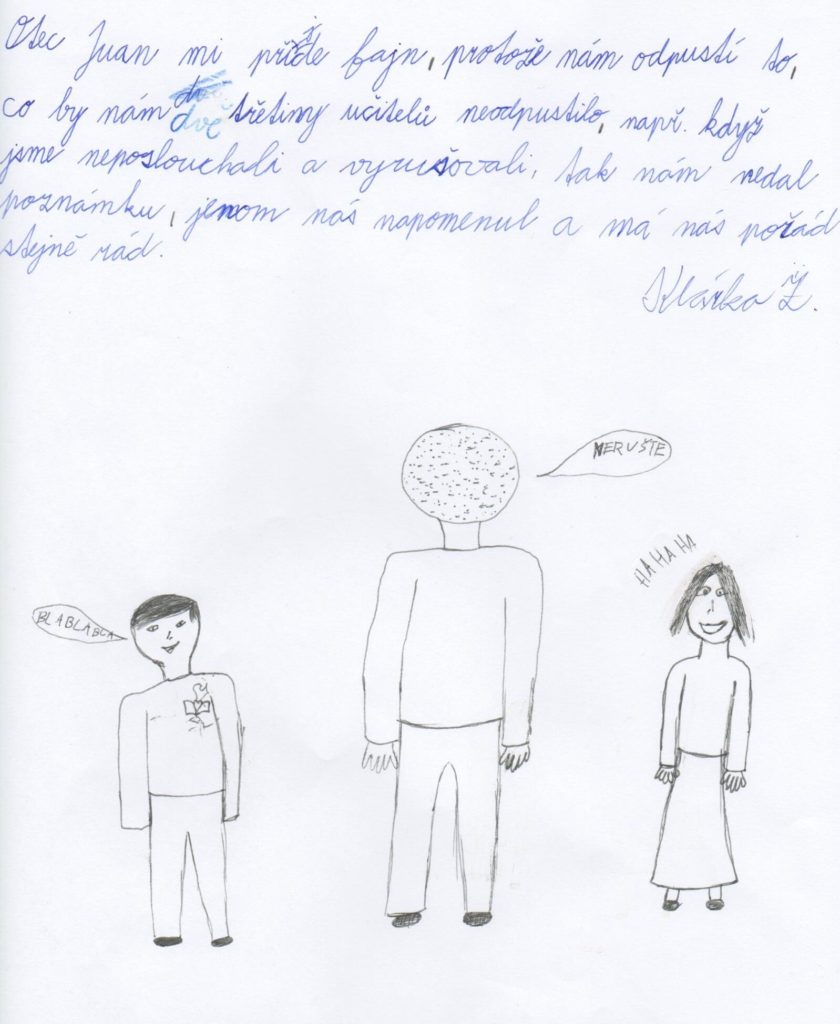 Otec Juan mi příjde fajn, protože nám odpustí to,
co by nám dvě třetiny učitelů neodpustilo, např. když
jsme neposlouchali a vyrušovali, tak nám nedal
poznámku, jenom nás napomenul a má nás pořád
stejně rád.
Klárka Ž.
NERUŠTE
HA HA HA
BLABLABLA